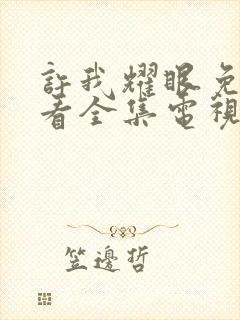 許我耀眼免
看全集電視
笠邊哲